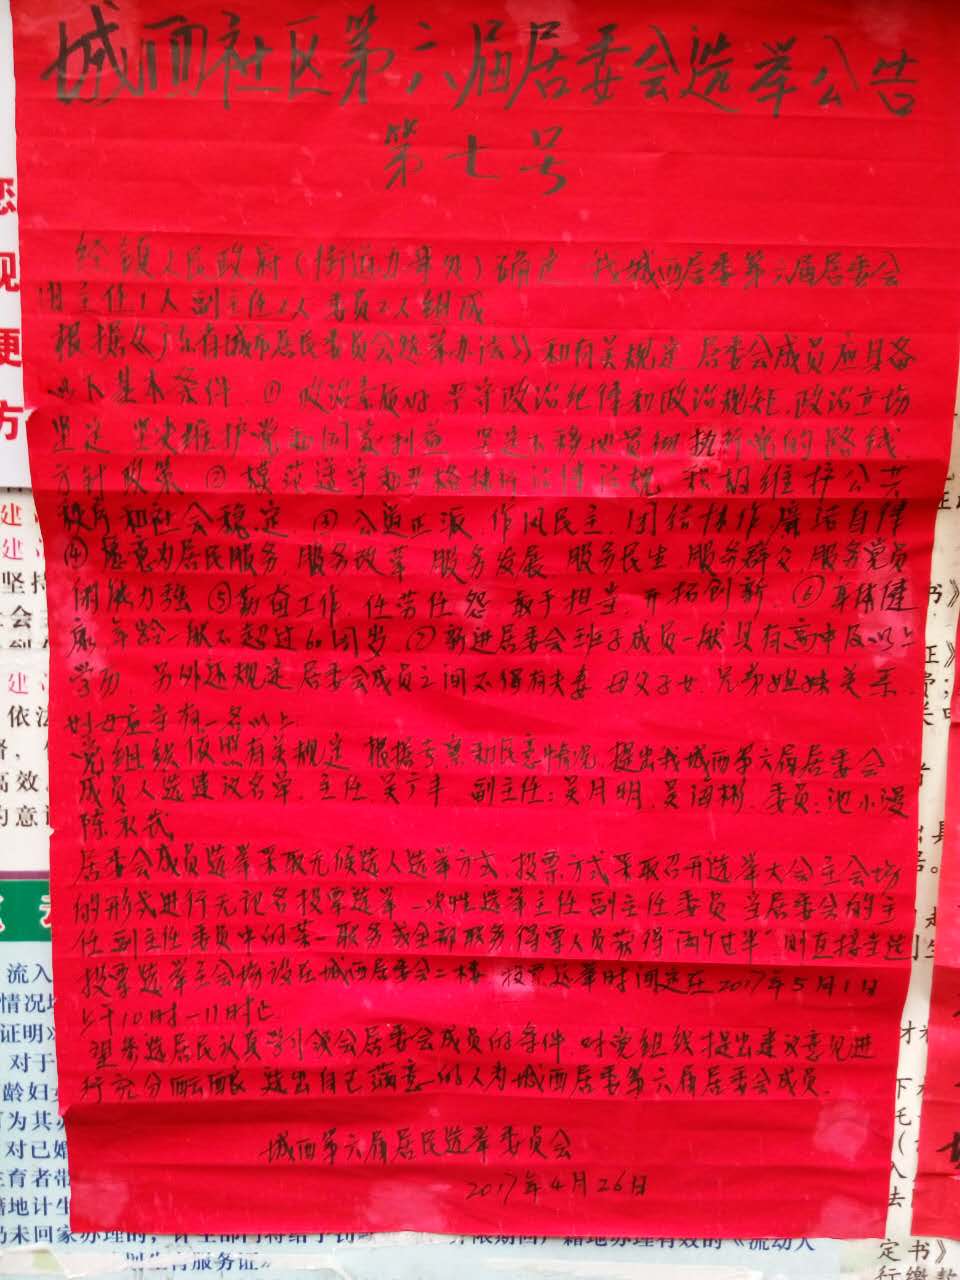 城西社区第六届居委会选举公告
第七号
经镇人民政府(街道办事处)确定 我城西居委第六届居委会
由主任1人 副主任2人 委员2人组成
根据《广东省城市居民委员会选举办法》和有关规定 居委会成员应具备
以下基本条件 ① 政治素质好 严守政治纪律和政治规矩 政治立场
坚定 坚决维护党和国家利益 坚定不移地贯彻执行党的路线
方针政策 ② 模范遵守和严格执行法律法规 积极维护公共
秩序和社会稳定 ③ 公道正派 作风民主 团结协作 廉洁自律
④ 愿意为居民服务 服务改革 服务发展 服务民生 服务群众 服务党员
能力强 ⑤ 勤奋工作 任劳任怨 敢于担当 开拓创新 ⑥ 身体健
康 年龄一般不超过60周岁 ⑦ 新进居委会班子成员一般具有高中及以上
学历 另外还规定居委会成员之间不得有夫妻 父母子女 兄弟姐妹关系
妇女应当有一名以上
党组织依照有关规定 根据考察和民意情况 提出我城西第六届居委会
成员人选建议名单 主任 吴 丰 副主任:吴月明 吴海彬 委员:池小漫
陈永武
居委会成员选举采取无候选人选举方式 投票方式采取召开选举大会主会场
的形式进行无记名投票选举 一次性选举主任副主任委员 当居委会的主
任副主任委员中的某一职务或全部职务得票人员获得"两个过半"则直接当选
投票选举主会场设在城西居委会二楼 投票选举时间定在2017年5月1日
上午10时—11时止
望参选居民认真学习领会居委会成员的条件 对党组织提出建议意见进
行充分酝酿 选出自己满意的人为城西居委第六届居委会成员
城西第六届居民选举委员会
2017年4月26日
您
现
便
方
建
建
坚持
社会
建
依法
高效
的意识
流入
情况
证明》
对于
龄妇女
可为其办
对已婚
生育者
籍地计生